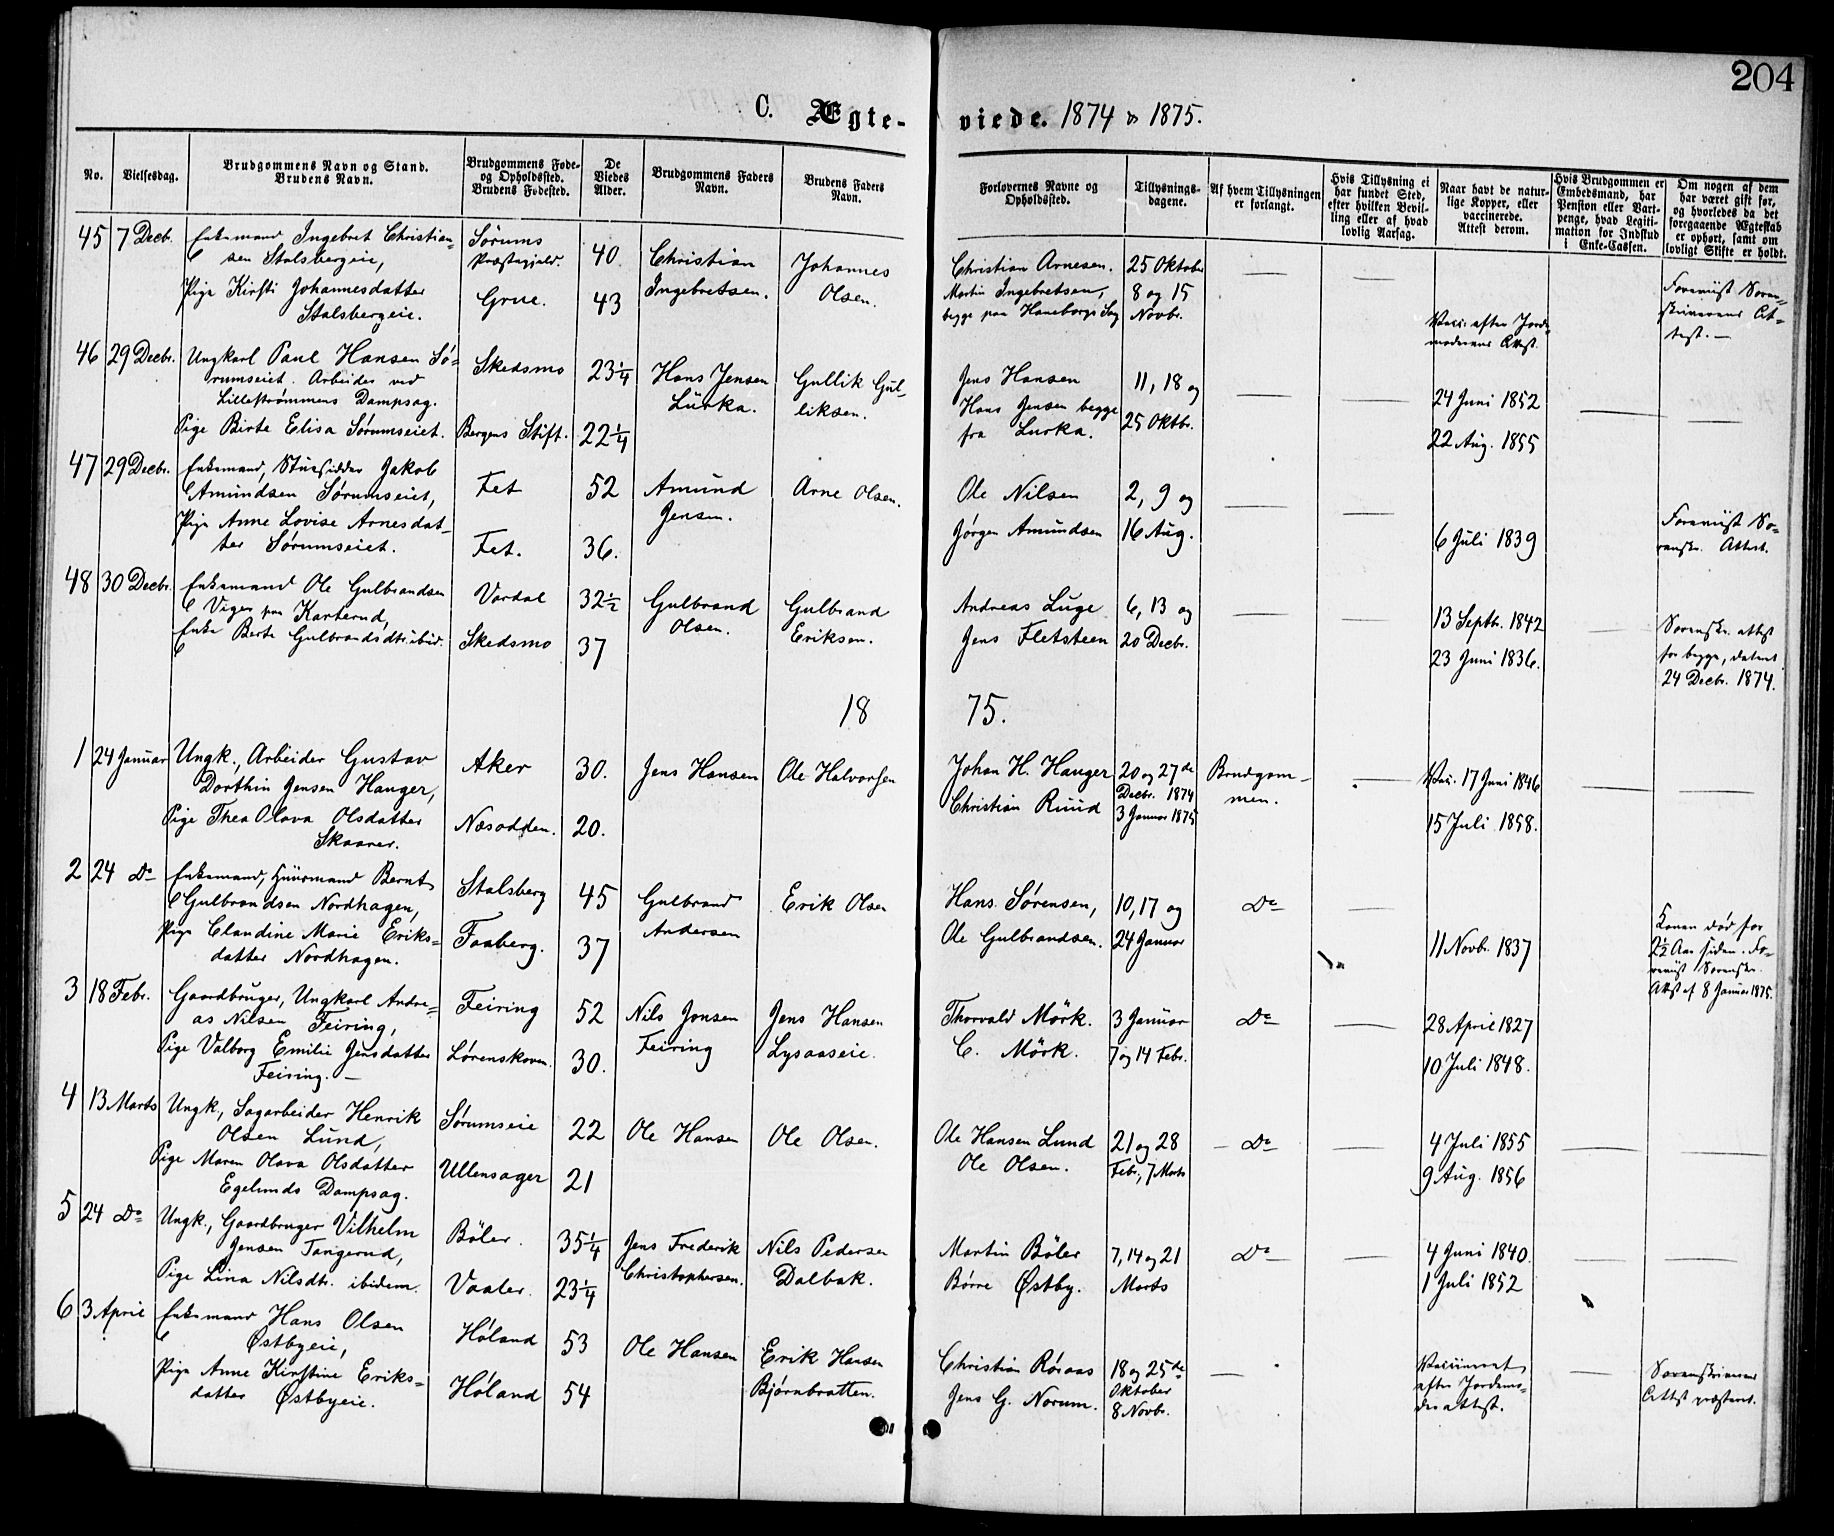 204
C. Ægte- viede. 1874 & 1875.
No.
Vielsesdag.
Brudgommens Navn og Stand.
Brudens Navn.
Brudgommens Føde-
og Opholdssted.
Brudens Fødested.
De
Viedes
Alder.
Brudgommens Faders
Navn.
Brudens Faders
Navn.
Forlovernes Navne og
Opholdssted.
Tillysnings-
dagene.
Af hvem Tillysningen
er forlangt.
Hvis Tillysning ei
har fundet Sted,
efter hvilken Bevil-
ling eller af hvad
lovlig Aarsag.
Naar havt de natur-
lige Kopper, eller
vaccinerede.
Attest derom.
Hvis Brudgommen er
Embedsmand, har
Pension eller Vart-
penge, hvad Legiti-
mation for Indskud
i Enke-Cassen.
Om nogen af dem
har været gift før,
og hvorledes da det
foregaaende Ægteskab
er ophørt, samt om
lovligt Skifte er holdt.
45 7 Decb.
Enkemand Ingebret Christian-
sen Stalsbergeie,
Pige Kirsti Johannesdatter
Stalsbergeie.
Sørums
Præstegjeld.
Grue.
40
43
Christian
Ingebretsen.
Johannes
Olsen.
Christian Arnesen.
Martin Ingebretsen,
begge paa Haneborgs Sag
25 Oktober
8 og 15
Novbr.
Vacc. efter Jorde-
moderens Attest.
Foreviist Soren-
skriverens At-
test. —
46 29 Decbr.
Ungkarl Paul Hansen Sø-
rumseiet. Arbeider ved
Lillestrømmens Dampsag.
Pige Birte Elisa Sørumseiet.
Skedsmo
Bergens Stift.
23 1/4
22 1/4
Hans Jensen
Lurka.
Gullik Gul-
liksen.
Jens Hansen
Hans Jensen begge
fra Lurka.
11, 18 og
25 Oktbr.
24 Juni 1852
22 Aug. 1855
47 29 Decbr.
Enkemand, Stuesidder Jakob
Amundsen Sørumseiet,
Pige Anne Lovise Arnesdat-
ter Sørumseiet.
Fet
Fet.
52
36.
Amund
Jensen.
Arne Olsen.
Ole Nilsen
Jørgen Amundsen
2, 9 og
16 Aug.
6 Juli 1839
Foreviist So-
renskr. Attest.
48 30 Decbr.
Enkemand Ole Gulbrandsen
Vigen paa Karterud,
Enke Berte Gulbrandsdtr. ibid.
Vardal
Skedsmo
32 1/2
37
Gulbrand
Olsen.
Gulbrand
Eriksen.
Andreas Luge
Jens Fletsteen
6, 13 og
20 Decbr.
13 Septbr. 1842
23 Juni 1836.
Sorenskr. attest
for begge, dateret
24 Decbr. 1874.
18 75.
1 24 Januar
Ungk., Arbeider Gustav
Dorthin Jensen Hanger,
Pige Thea Olava Olsdatter
Skaarer.
Aker
Næsodden.
30.
20.
Jens Hansen
Ole Halvorsen
Johan H. Hanger
Christian Ruud
20 og 27de
Decbr. 1874
3 Januar 1875
Brudgom-
men.
Vac. 17 Juni 1846
15 Juli 1858.
2 24 Do
Enkemand, Huusmand Bernt
Gulbrandsen Nordhagen,
Pige Claudine Marie Eriks-
datter Nordhagen.
Stalsberg
Faaberg.
45
37
Gulbrand
Andersen
Erik Olsen
Hans Sørensen,
Ole Gulbrandsen.
10, 17 og
24 Januar
Do
11 Novb. 1837
Konen død for
2 1/2 Aar siden. Fo-
reviist Sorenskr.
Attest af 8 Januar 1875.
3 18 Febr.
Gaardbruger, Ungkarl Andre-
as Nilsen Feiring,
Pige Valborg Emilie Jensdatter
Feiring. —
Feiring
Lørenskoven.
52
30.
Nils Jonsen
Feiring
Jens Hansen
Lysaaseie.
Thorvald Mörk.
C. Mörk.
3 Januar
7 og 14 Febr.
Do
28 April 1827
10 Juli 1848.
4 13 Marts
Ungk., Sagarbeider Henrik
Olsen Lund,
Pige Maren Olava Olsdatter
Egelunds Dampsag.
Sørumseie
Ullensager
22
21
Ole Hansen
Ole Olsen.
Ole Hansen Lund
Ole Olsen.
21 og 28
Febr., 7 Marts
Do
4 Juli 1855
9 Aug. 1856
5 24 Do
Ungk., Gaardbruger Vilhelm
Jensen Tangerud,
Pige Lina Nilsdtr. ibidem.
Böler.
Vaaler.
35 1/4
23 1/4
Jens Frederik
Christophersen.
Nils Pedersen
Dalbak.
Martin Böler
Børre Østby.
7, 14 og 21
Marts
Do
4 Juni 1840.
1 Juli 1852
6 3 April
Enkemand Hans Olsen
Østbyeie,
Pige Anne Kirstine Eriks-
datter Østbyeie.
Høland
Høland
53
54
Ole Hansen
Erik Hansen
Bjørnbratten.
Christian Röraas
Jens G. Norum.
18 og 25de
Oktober
8 Novbr.
Vaccineret
efter Jordemo-
derattest.
Sorenskriverens
Attest præsteret.